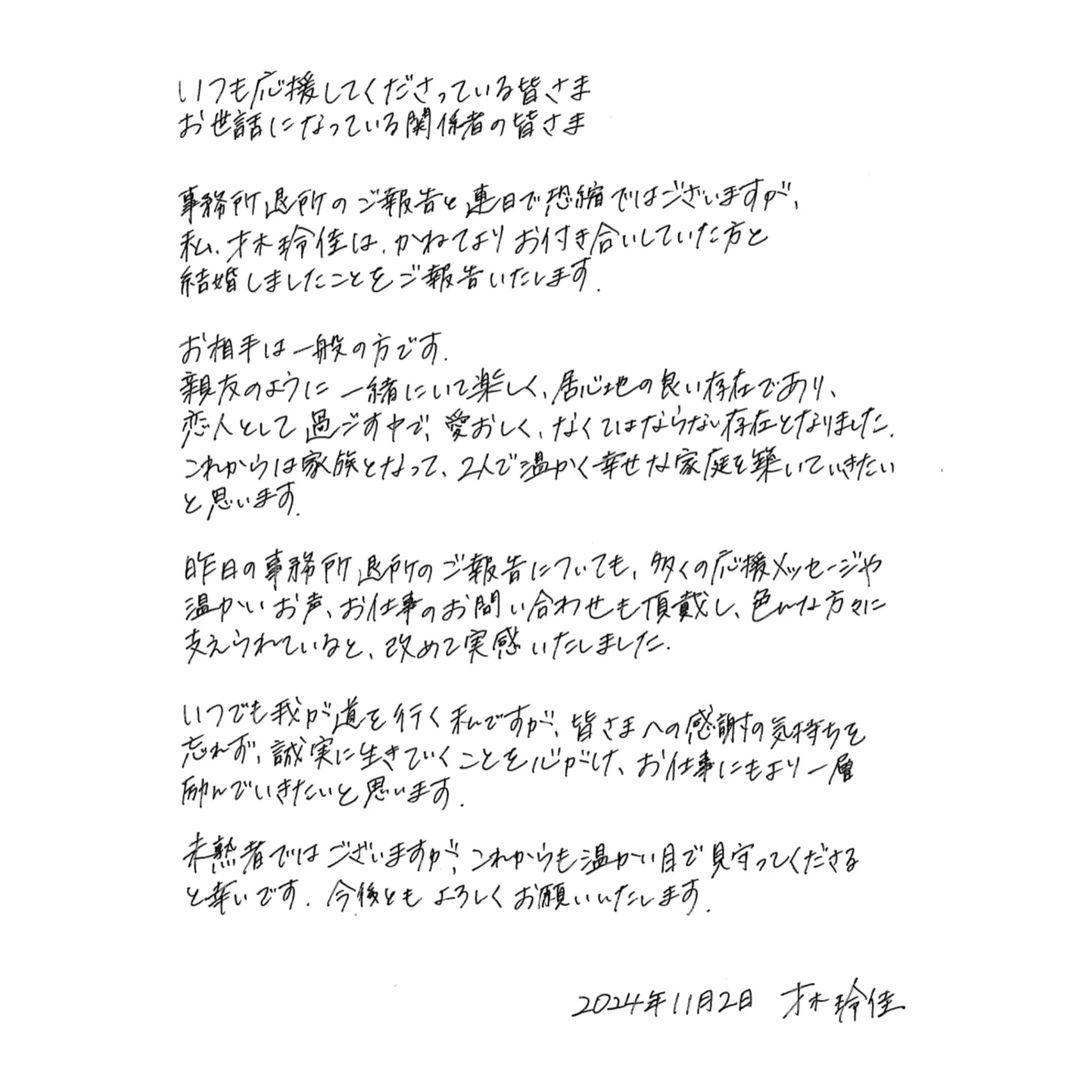 いつも応援してくださっている皆さま
お世話になっている関係者の皆さま
事務所退所のご報告と連日で恐縮ではございますが、
私、才木玲佳は、かねてよりお付き合いしていた方と
結婚しましたことをご報告いたします。
お相手は一般の方です。
親友のように一緒にいて楽しく、居心地の良い存在であり、
恋人として過ごす中で、愛おしく、なくてはならない存在となりました。
これからは家族となって、2人で温かく幸せな家庭を築いていきたい
と思います。
昨日の事務所退所のご報告についても、多くの応援メッセージや
温かいお声、お仕事のお問い合わせも頂戴し、色んな方々に
支えられていると、改めて実感いたしました。
いつでも我が道を行く私ですが、皆さまへの感謝の気持ちを
忘れず、誠実に生きていくことを心がけ、お仕事にもより一層
励んでいきたいと思います。
未熟者ではございますが、これからも温かい目で見守ってくださる
と幸いです。今後ともよろしくお願いいたします。
2024年11月2日 才木玲佳